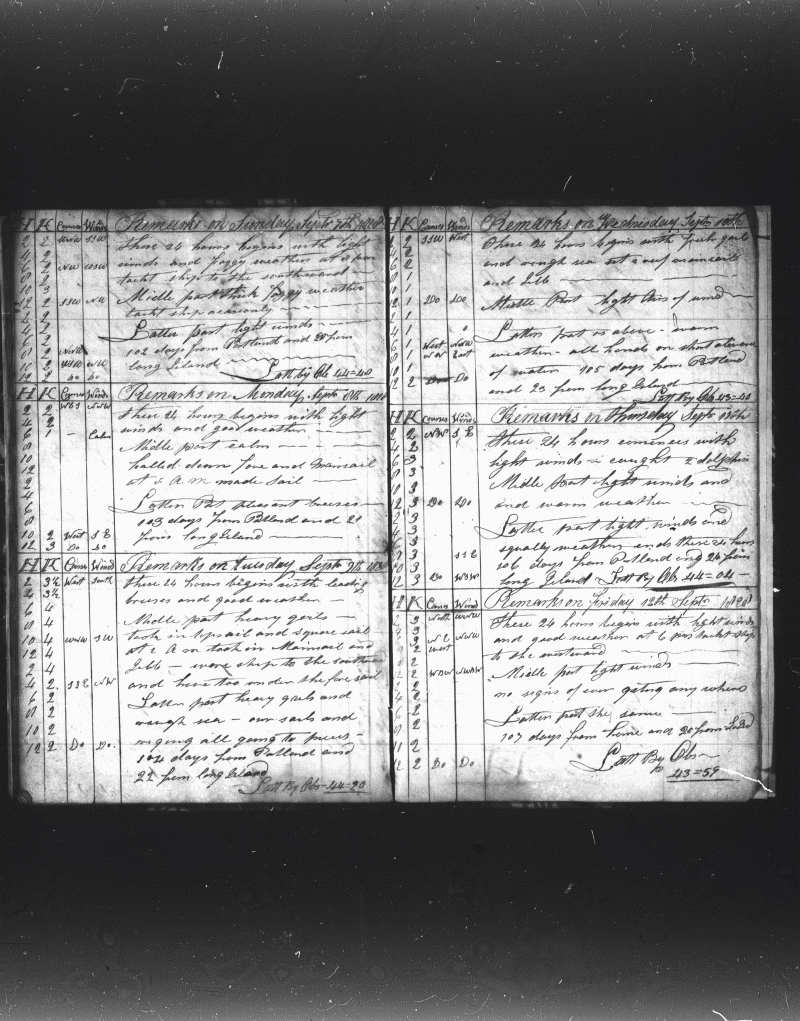 H K Courses Winds Remarks on Sunday Septr 7th
2 2 WNW SSW these 24 hours begins with light
4 2 winds and foggy weather at 8 pm
6 2 NW WSW tackt ship to the southward
8 2
10 3 Midle part thick foggy weather
12 2 SSW NW tackt ship ocasionly
2 2
4 2 Latter part light winds
6 2 102 days from Portland and 20 from
8 2 long Island
12 Do Do Latt by Ob 44=40
H K Courses Winds Remarks on Monday Septr 8th
2 2 WbS NNW these 24 hours begins with light
4 2 winds and good weather
6 1 - Calm
8 Midle part calm
10 halled down fore and mansail
12 at 2 A m made sail
2
4 Latter Part pleasant breeses
6 103 days from Potland and 21
8 from long Island
10 2 West S E
12 3 Do Do
H K Courses Winds Remarks on tuesday Septr 9th
2 3½ West South these 24 hours begins with leading
4 3½ breeses and good weather
6 4
8 4 Midle part heavy gails
10 4 WNW SW took in topsail and square sail
12 4 at 2 A m took in Mainsail and
2 4 Jibb - wore ship to the southerd
4 2 SSE NW and have too under the fore sail
6 2 Latter part heavy gails and
8 2 rough sea - our sails and
10 2 riging all going to peices
12 2 Do Do. 104 days from Potland and
22 from long Island
Latt By Obs 44=20
H K Courses Winds Remarks on Wednesday Septr 10th
2 2 SSW West these 24 hours begins with fresh gails
4 2 and rough sea set 2 reef mainsail
6 2 and Jibb
8 1
10 1
12 1 Do Do Midle Part light Airs of wind
2
4 1 Latter part as above - warm
6 1 West NNW weather - all hands on short alowance
8 1 of water 105 days from Portland
10 1
12 2 Do and 23 from long Island
Latt By Obs 43=40
H K Courses Winds Remarks on Thursday Septr 11th
2 2 NW S E these 24 hours comences with
4 2 light winds - caught 2 dolphin
6 3
8 3 Midle Part light winds and
10 3
12 3 Do Do and warm weather
2 3
4 3 Latter part light winds and
6 3 squally weather ends these 24 hours
8 3 SSE 106 days from Potland and 24 from
12 3 Do WSW long Island Latt By Obs 44=04
H K Cours Winds Remarks on Friday 12th Septr
2 3 North WNW these 24 hours begins with light winds
4 3 and good weather at 6 pm tackt ship
6 2 NE NNW to the westward
8 2 West
10 2 Midle part light winds
12 2 WNW no signs of ever geting any where
2 2
4 2
6 2 Latter part the same
8 2 107 days from home and 25 from
10 2
12 2 Do Do Latt By Obs
43=59